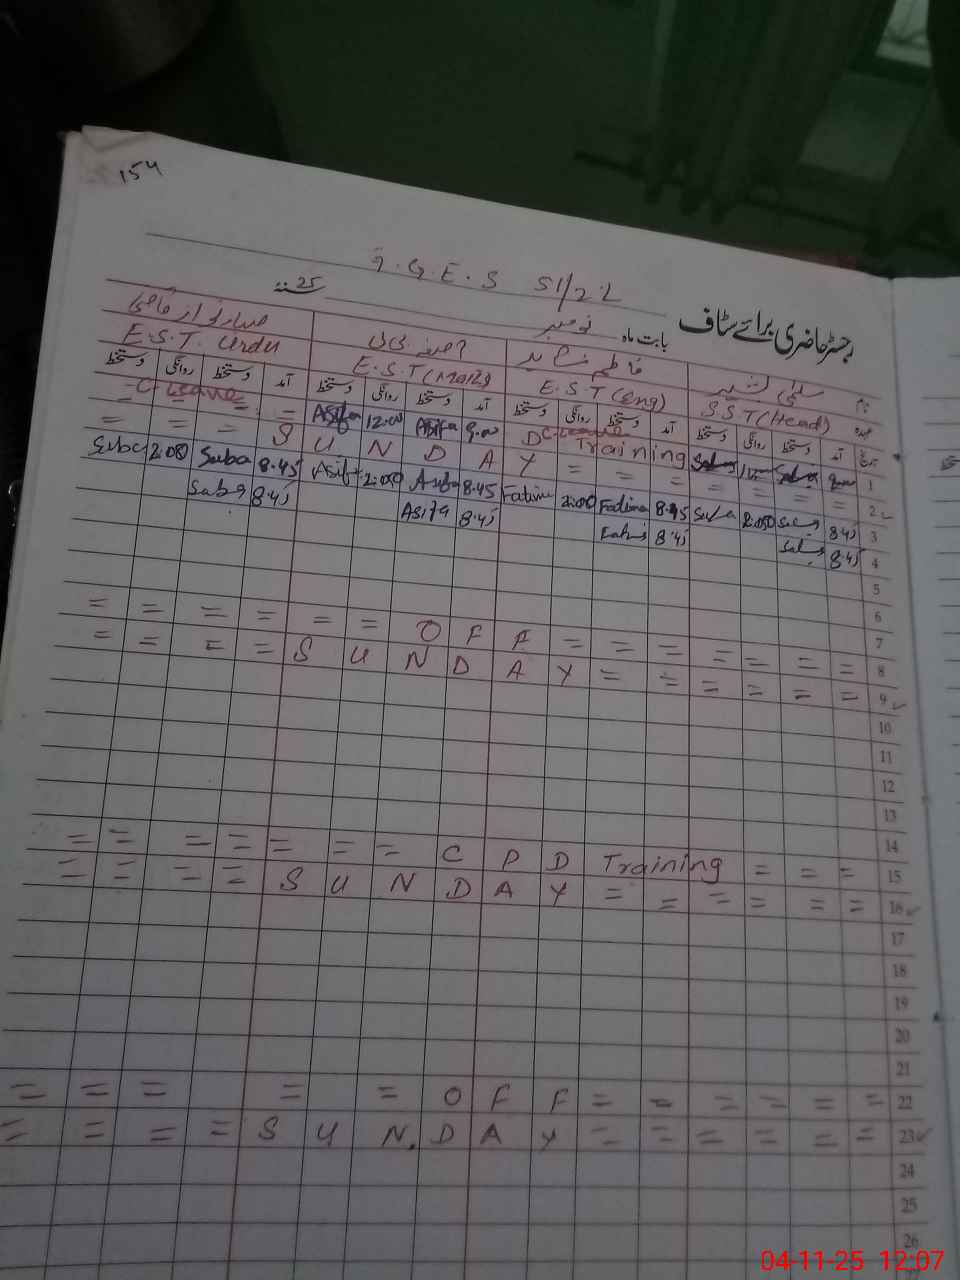 154
G.G.E.S 51/2L
رجسٹر حاضری برائے سٹاف بابت ماہ نومبر سنہ 25
نام
S.S.T (Head) E.S.T (Eng) E.S.T (Math) E.S.T. Urdu
تاریخ آمد دستخط روانگی دستخط آمد دستخط روانگی دستخط آمد دستخط روانگی دستخط آمد دستخط روانگی دستخط
1 Training C-Leave 9.00 Asifa 12.00 Asifa = C-Leave =
2 = = = = = = S U N D A Y = = =
3 8.45 2:00 8.45 Fatima 2:00 Fatima 8.45 Asifa 2:00 Asifa 8.45 Saba 2:00 Saba
4 8.45 8.45 8.45 Asifa 8.45 Saba
5
6
7
8 = = = = = = = O F F = = = = = =
9 = = = = = = S U N D A Y = = = =
10
11
12
13
14
15 = = = C P D Training = = = = = = =
16 = = = = = = S U N D A Y = = = =
17
18
19
20
21
22 = = = = = = = O F F = = = = =
23 = = = = = = S U N D A Y = = = =
24
25
26
04-11-25 12:07